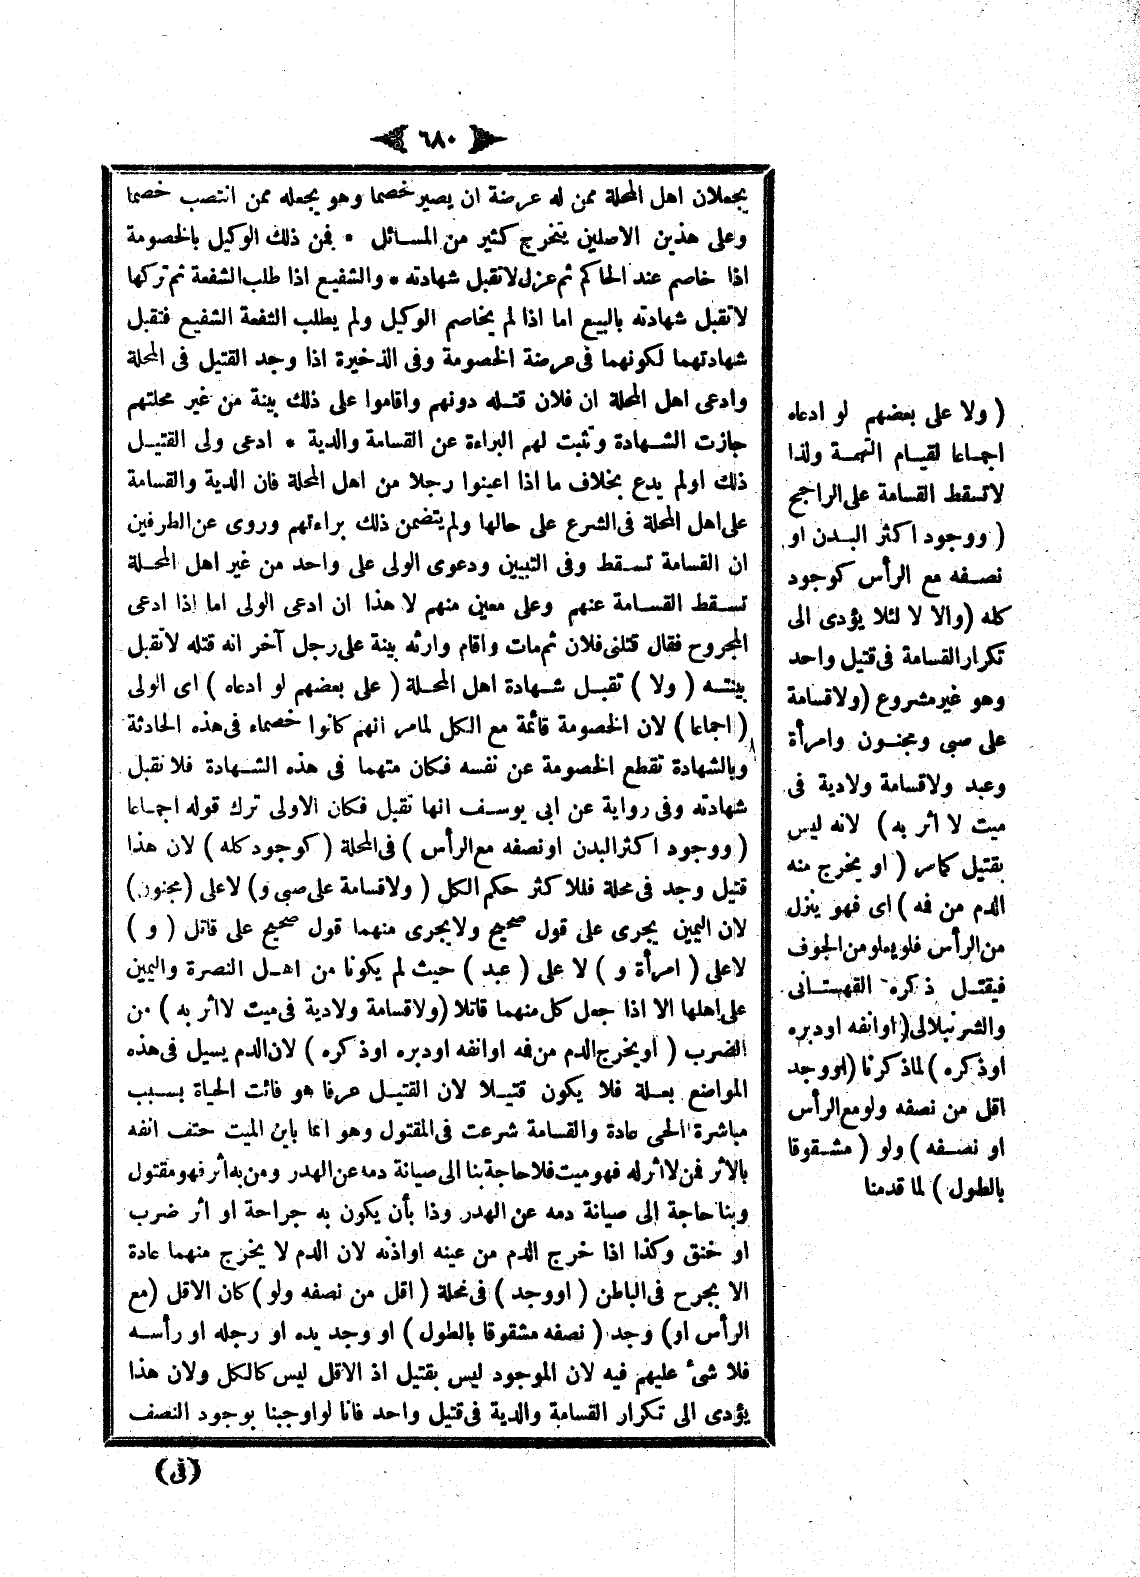 ٦٨٠
يجعلان اهل المحلة ممن له عرضة ان يصير خصما وهو يجعله ممن انتصب خصما
وعلى هذين الاصلين يتخرج كثير من المسائل * فمن ذلك الوكيل بالخصومة
اذا خاصم عند الحاكم ثم عزل لاتقبل شهادته * والشفيع اذا طلب الشفعة ثم تركها
لا تقبل شهادته بالبيع اما اذا لم يخاصم الوكيل ولم يطلب الشفعة الشفيع فتقبل
شهادتهما لكونهما فى عرضة الخصومة وفى الذخيرة اذا وجد القتيل فى المحلة
وادعى اهل المحلة ان فلان قتله دونهم واقاموا على ذلك بينة من غير محلتهم
جازت الشهادة وتثبت لهم البراءة عن القسامة والدية * ادعى ولى القتيل
ذلك اولم يدع بخلاف ما اذا اعينوا رجلا من اهل المحلة فان الدية والقسامة
على اهل المحلة فى الشرع على حالها ولم يتضمن ذلك براءتهم وروى عن الطرفين
ان القسامة تسقط وفى التبيين ودعوى الولى على واحد من غير اهل المحلة
تسقط القسامة عنهم وعلى معين منهم لا هذا ان ادعى الولى اما اذا ادعى
المجروح فقال قتلنى فلان ثم مات واقام وارثه بينة على رجل آخر انه قتله لاتقبل
بينته ( ولا ) تقبل شهادة اهل المحلة ( على بعضهم لو ادعاه ) اى الولى
( اجماعا ) لان الخصومة قائمة مع الكل لمامر انهم كانوا خصماء فى هذه الحادثة
وبالشهادة تقطع الخصومة عن نفسه فكان متهما فى هذه الشهادة فلا تقبل
شهادته وفى رواية عن ابى يوسف انها تقبل فكان الاولى ترك قوله اجماعا
( ووجود اكثر البدن اونصفه مع الرأس ) فى المحلة ( كوجود كله ) لان هذا
قتيل وجد فى محلة فللا كثر حكم الكل ( ولاقسامة على صبى و) لاعلى (مجنون)
لان اليمين يجرى على قول صحيح ولايجرى منهما قول صحيح على قاتل ( و )
لاعلى ( امرأة و ) لا على ( عبد ) حيث لم يكونا من اهل النصرة واليمين
على اهلها الا اذا جعل كل منهما قاتلا (ولاقسامة ولادية فى ميت لااثر به ) من
الضرب ( اويخرج الدم من فه اوانفه اودبره اوذكره ) لان الدم يسيل فى هذه
المواضع بعلة فلا يكون قتيلا لان القتيل عرفا هو فائت الحياة بسبب
مباشرة الحى عادة والقسامة شرعت فى المقتول وهو انما باين الميت حتف انفه
بالاثر فمن لااثر له فهو ميت فلاحاجة بنا الى صيانة دمه عن الهدر ومن به أثر فهو مقتول
وبنا حاجة الى صيانة دمه عن الهدر وذا بأن يكون به جراحة او اثر ضرب
او خنق وكذا اذا خرج الدم من عينه اواذنه لان الدم لا يخرج منهما عادة
الا بجرح فى الباطن ( اووجد ) فى محلة ( اقل من نصفه ولو ) كان الاقل ( مع
الرأس او) وجد ( نصفه مشقوقا بالطول ) او وجد يده او رجله او رأسه
فلا شئ عليهم فيه لان الموجود ليس بقتيل اذ الاقل ليس كالكل ولان هذا
يؤدى الى تكرار القسامة والدية فى قتيل واحد فانا لواوجبنا بوجود النصف
(فى)
( ولا على بعضهم لو ادعاه
اجماعا لقيام التهمة ولذا
لاتسقط القسامة على الراجح
( ووجود اكثر البدن او
نصفه مع الرأس كوجود
كله (والا لا لئلا يؤدى الى
تكرار القسامة فى قتيل واحد
وهو غير مشروع (ولاقسامة
على صبى ومجنون وامرأة
وعبد ولاقسامة ولادية فى
ميت لا اثر به ) لانه ليس
بقتيل كمامر ( او يخرج منه
الدم من فه ) اى فهو ينزل
من الرأس فلو يعلو من الجوف
فيقتل ذكره القهستانى
والشرنبلالى ( اوانفه اودبره
اوذكره ) لماذكرنا ( اووجد
اقل من نصفه ولومع الرأس
او نصفه ) ولو ( مشقوقا
بالطول ) لما قدمنا